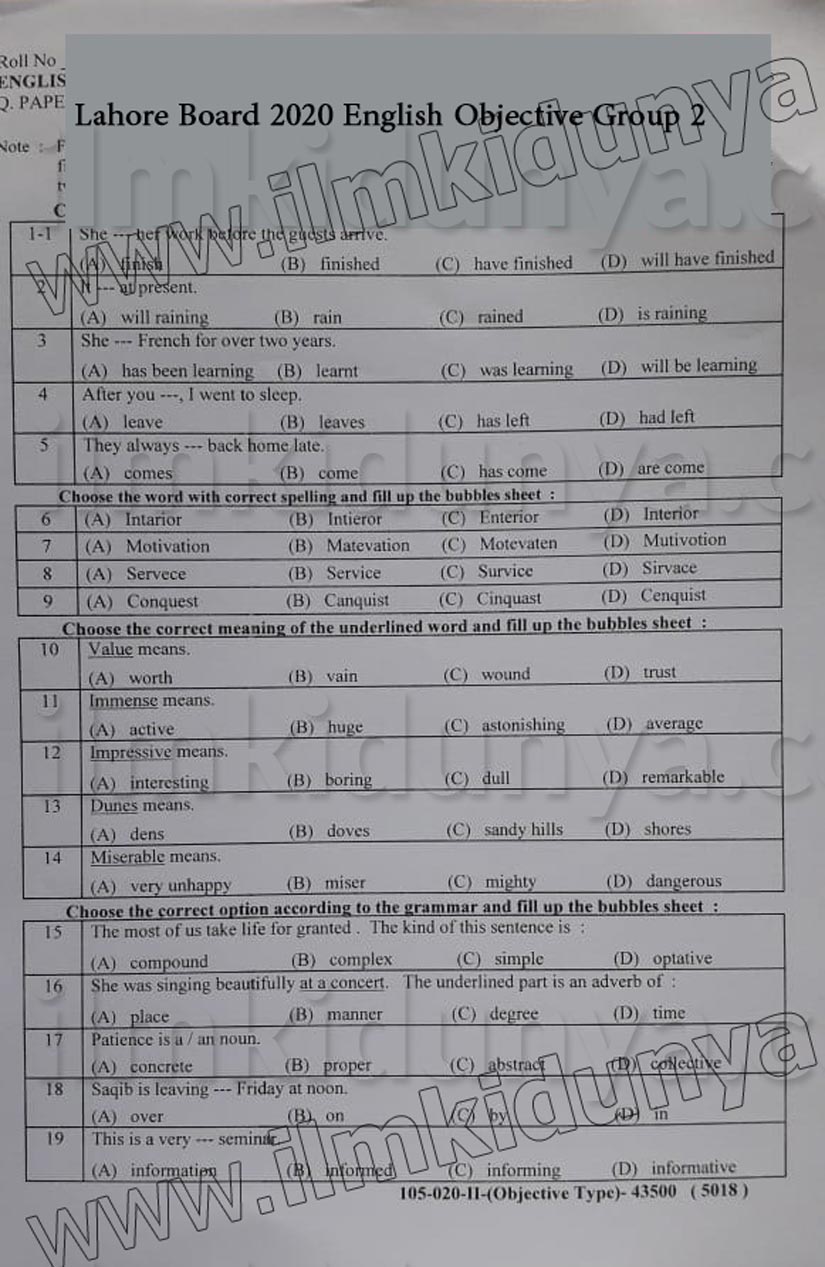 Roll No
ENGLIS
Q. PAPE
Lahore Board 2020 English Objective Group 2
Note : F
1-1 She --- her work before the guests arrive.
(A) finish (B) finished (C) have finished (D) will have finished
2 It --- at present.
(A) will raining (B) rain (C) rained (D) is raining
3 She --- French for over two years.
(A) has been learning (B) learnt (C) was learning (D) will be learning
4 After you ---, I went to sleep.
(A) leave (B) leaves (C) has left (D) had left
5 They always --- back home late.
(A) comes (B) come (C) has come (D) are come
Choose the word with correct spelling and fill up the bubbles sheet :
6 (A) Intarior (B) Intieror (C) Enterior (D) Interior
7 (A) Motivation (B) Matevation (C) Motevaten (D) Mutivotion
8 (A) Servece (B) Service (C) Survice (D) Sirvace
9 (A) Conquest (B) Canquist (C) Cinquast (D) Cenquist
Choose the correct meaning of the underlined word and fill up the bubbles sheet :
10 Value means.
(A) worth (B) vain (C) wound (D) trust
11 Immense means.
(A) active (B) huge (C) astonishing (D) average
12 Impressive means.
(A) interesting (B) boring (C) dull (D) remarkable
13 Dunes means.
(A) dens (B) doves (C) sandy hills (D) shores
14 Miserable means.
(A) very unhappy (B) miser (C) mighty (D) dangerous
Choose the correct option according to the grammar and fill up the bubbles sheet :
15 The most of us take life for granted . The kind of this sentence is :
(A) compound (B) complex (C) simple (D) optative
16 She was singing beautifully at a concert. The underlined part is an adverb of :
(A) place (B) manner (C) degree (D) time
17 Patience is a / an noun.
(A) concrete (B) proper (C) abstract (D) collective
18 Saqib is leaving --- Friday at noon.
(A) over (B) on (C) by (D) in
19 This is a very --- seminar.
(A) information (B) informed (C) informing (D) informative
105-020-II-(Objective Type)- 43500 ( 5018 )
www.ilmkidunya
ilmkidunya.c
ilmkidunya.c
ilmkidunya.c
ilmkidunya
www.ilmkidunya